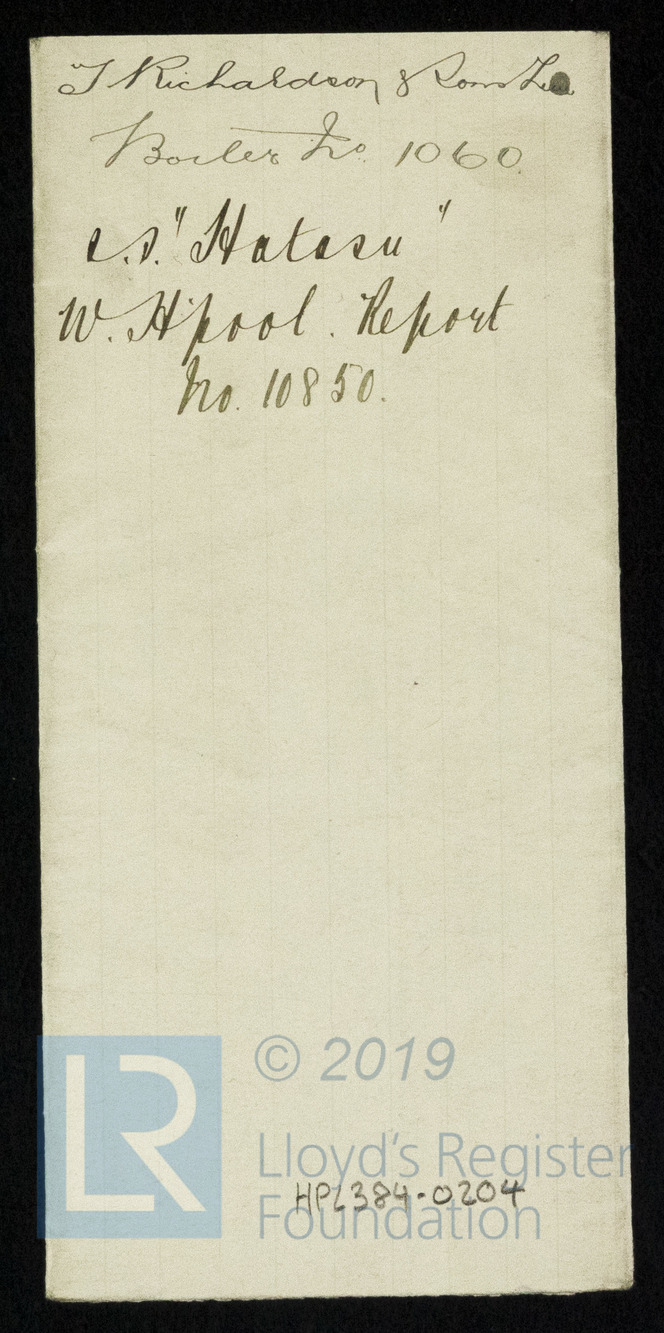 T Richardson & Sons Ltd
Boiler No. 1060
s.s. "Hatasu"
W. H'pool. Report
No. 10850.
© 2019
LR
Lloyd's Register
Foundation
HPL384-0204